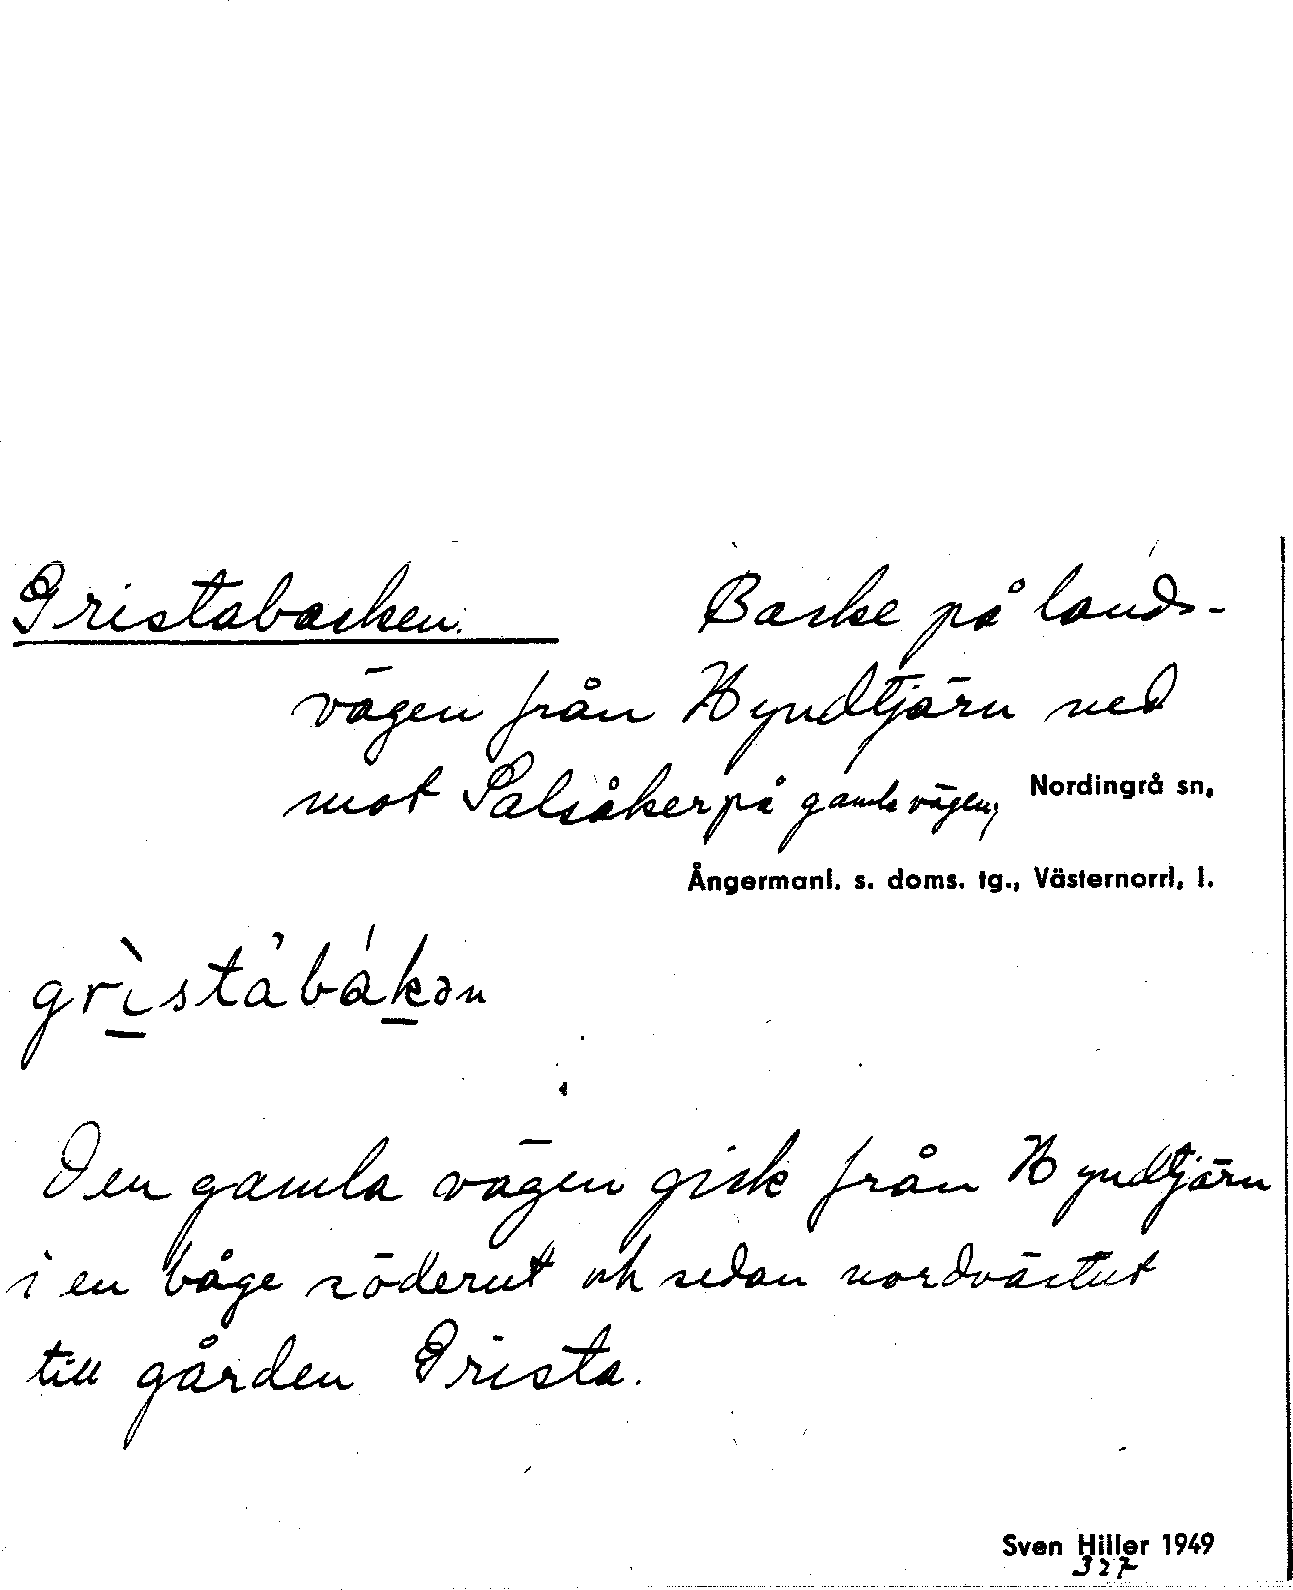 Gristabacken. Backe på lands-
vägen från Hyndtjärn ned
mot Salsåker på gamla vägen,
Nordingrå sn,
Ångermanl. s. doms. tg., Västernorrl. l.
grìstabákən
Den gamla vägen gick från Hyndtjärn
i en båge söderut och sedan nordvästut
till gården Grista.
Sven Hiller 1949
327